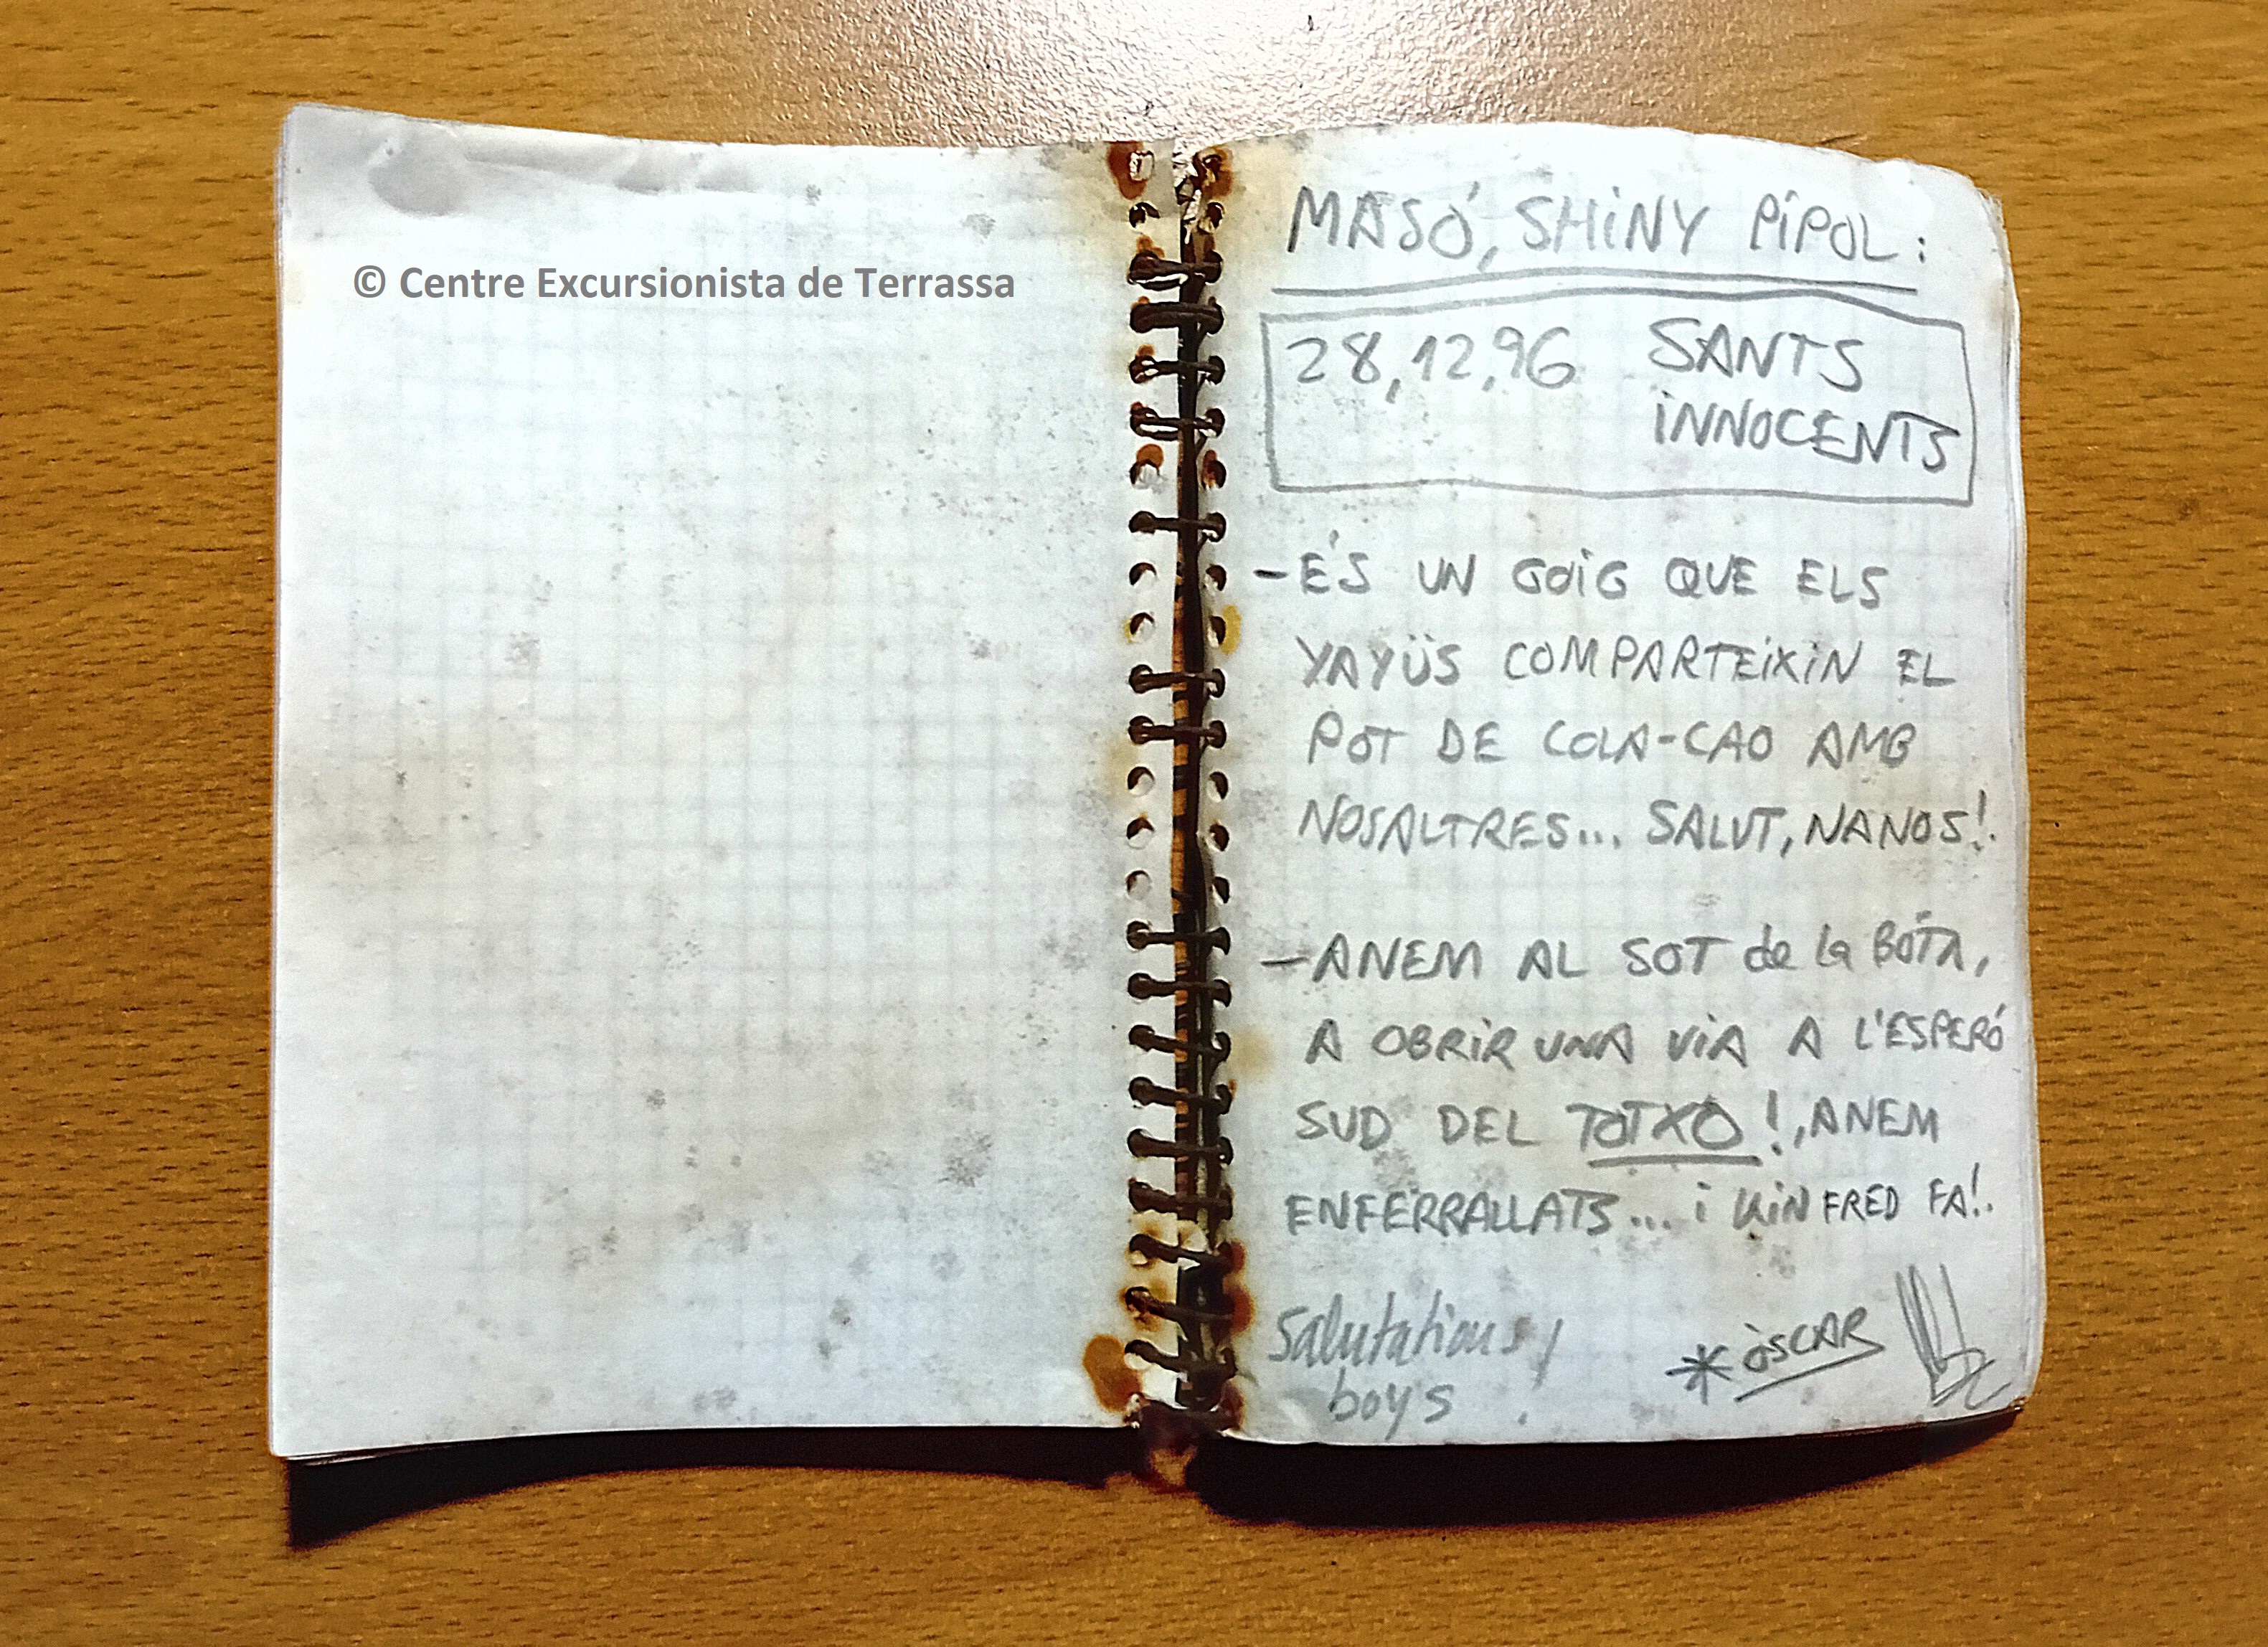 © Centre Excursionista de Terrassa
MASÓ, SHiNY PÍPOL:
28,12,96 SANTS
iNNOCENTS
- ÉS UN GOiG QUE ELS
YAYÜS COMPARTEiXiN EL
POT DE COLA-CAO AMB
NOSALTRES... SALUT, NANOS!.
- ANEM AL SOT de la BÓTA,
A OBRiR UNA ViA A L'ESPERÓ
SUD DEL TOTXO!, ANEM
ENFERRALLATS... i KiN FRED FA!.
Salutations,
boys !
* ÒSCAR